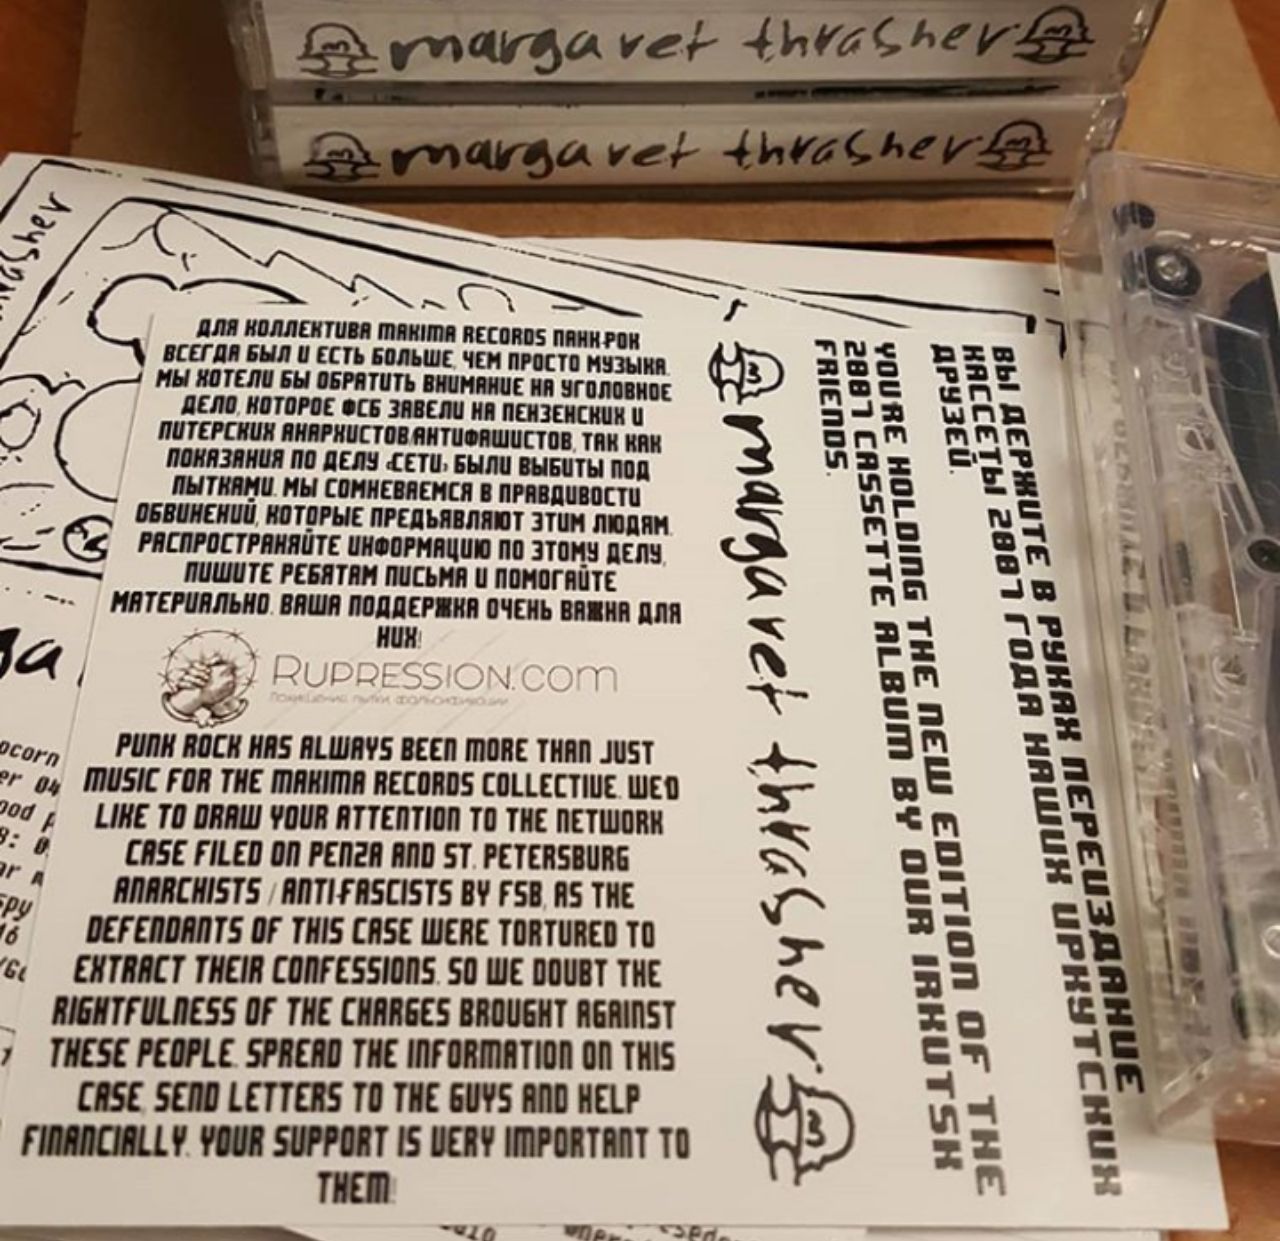 margaret thrasher
margaret thrasher
thrasher
ДЛЯ КОЛЛЕКТИВА MAKIMA RECORDS ПАНК-РОК
ВСЕГДА БЫЛ И ЕСТЬ БОЛЬШЕ, ЧЕМ ПРОСТО МУЗЫКА.
МЫ ХОТЕЛИ БЫ ОБРАТИТЬ ВНИМАНИЕ НА УГОЛОВНОЕ
ДЕЛО, КОТОРОЕ ФСБ ЗАВЕЛИ НА ПЕНЗЕНСКИХ И
ПИТЕРСКИХ АНАРХИСТОВ/АНТИФАШИСТОВ, ТАК КАК
ПОКАЗАНИЯ ПО ДЕЛУ «СЕТИ» БЫЛИ ВЫБИТЫ ПОД
ПЫТКАМИ. МЫ СОМНЕВАЕМСЯ В ПРАВДИВОСТИ
ОБВИНЕНИЙ, КОТОРЫЕ ПРЕДЪЯВЛЯЮТ ЭТИМ ЛЮДЯМ.
РАСПРОСТРАНЯЙТЕ ИНФОРМАЦИЮ ПО ЭТОМУ ДЕЛУ,
ПИШИТЕ РЕБЯТАМ ПИСЬМА И ПОМОГАЙТЕ
МАТЕРИАЛЬНО. ВАША ПОДДЕРЖКА ОЧЕНЬ ВАЖНА ДЛЯ
НИХ!
RUPRESSION.COM
Похищения, пытки, фальсификации
PUNK ROCK HAS ALWAYS BEEN MORE THAN JUST
MUSIC FOR THE MAKIMA RECORDS COLLECTIVE. WE'D
LIKE TO DRAW YOUR ATTENTION TO THE NETWORK
CASE FILED ON PENZA AND ST. PETERSBURG
ANARCHISTS / ANTI-FASCISTS BY FSB, AS THE
DEFENDANTS OF THIS CASE WERE TORTURED TO
EXTRACT THEIR CONFESSIONS. SO WE DOUBT THE
RIGHTFULNESS OF THE CHARGES BROUGHT AGAINST
THESE PEOPLE. SPREAD THE INFORMATION ON THIS
CASE, SEND LETTERS TO THE GUYS AND HELP
FINANCIALLY. YOUR SUPPORT IS VERY IMPORTANT TO
THEM!
margaret thrasher
ВЫ ДЕРЖИТЕ В РУКАХ ПЕРЕИЗДАНИЕ
КАССЕТЫ 2007 ГОДА НАШИХ ИРКУТСКИХ
ДРУЗЕЙ.
YOU'RE HOLDING THE NEW EDITION OF THE
2007 CASSETTE ALBUM BY OUR IRKUTSK
FRIENDS.